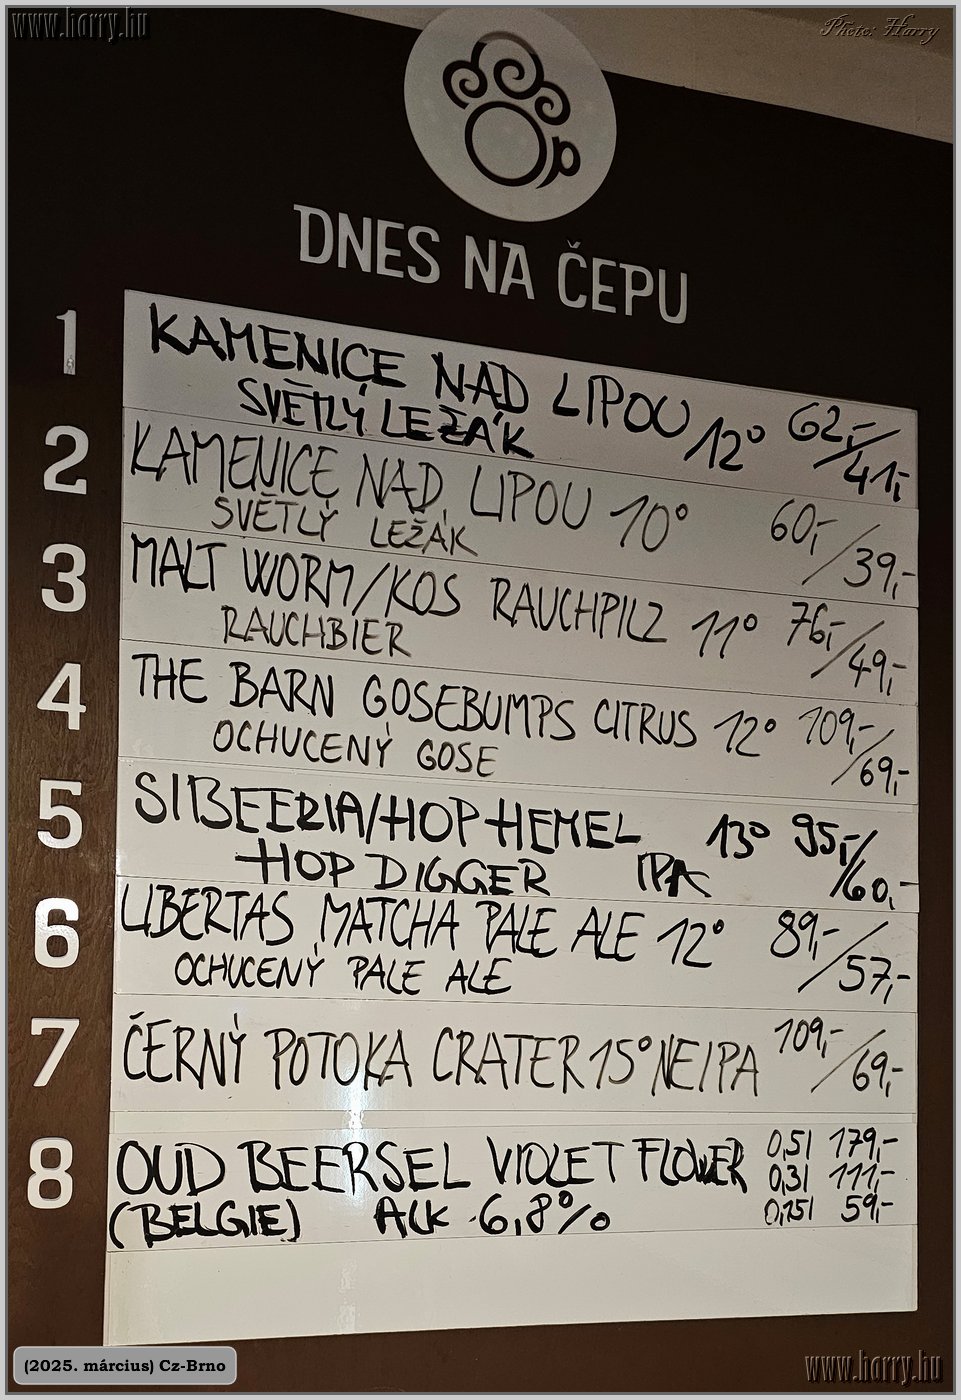 www.harry.hu
Photo: Harry
p
DNES NA ČEPU
1
KAMENICE NAD LIPOU 12° 62,-/41,-
SVĚTLÝ LEŽÁK
2
KAMENICE NAD LIPOU 10° 60,-/39,-
SVĚTLÝ LEŽÁK
3
MALT WORM/KOS RAUCHPILZ 11° 76,-/49,-
RAUCHBIER
4
THE BARN GOSEBUMPS CITRUS 12° 109,-/69,-
OCHUCENÝ GOSE
5
SIBEERIA/HOP HEMEL 13° 95,-/60,-
HOP DIGGER IPA
6
LIBERTAS MATCHA PALE ALE 12° 89,-/57,-
OCHUCENÝ PALE ALE
7
ČERNÝ POTOKA CRATER 15° NEIPA 109,-/69,-
8
OUD BEERSEL VIOLET FLOWER 0,5l 179,-
0,3l 111,-
(BELGIE) ALK 6,8% 0,15l 59,-
(2025. március) Cz-Brno
www.harry.hu